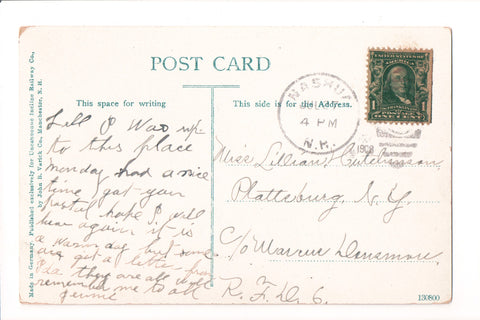 POST CARD
This space for writing
This side is for the Address.
Made in Germany. Published exclusively for Uncanoonuc Incline Railway Co.,
by John B. Varick Co. Manchester, N. H.
NASHUA
4 PM
N.H.
1908
1 1
ONE CENT
Lill I was up
to this place
monday had a nice
time got your
postal hope I will
hear again it is
a warm day but
got a letter from
they are all well
remember me to all
Jennie
Miss Lillian Hutchinson
Plattsburg, N.Y.
c/o Marcus Densmore
R.F.D. 6.
130800